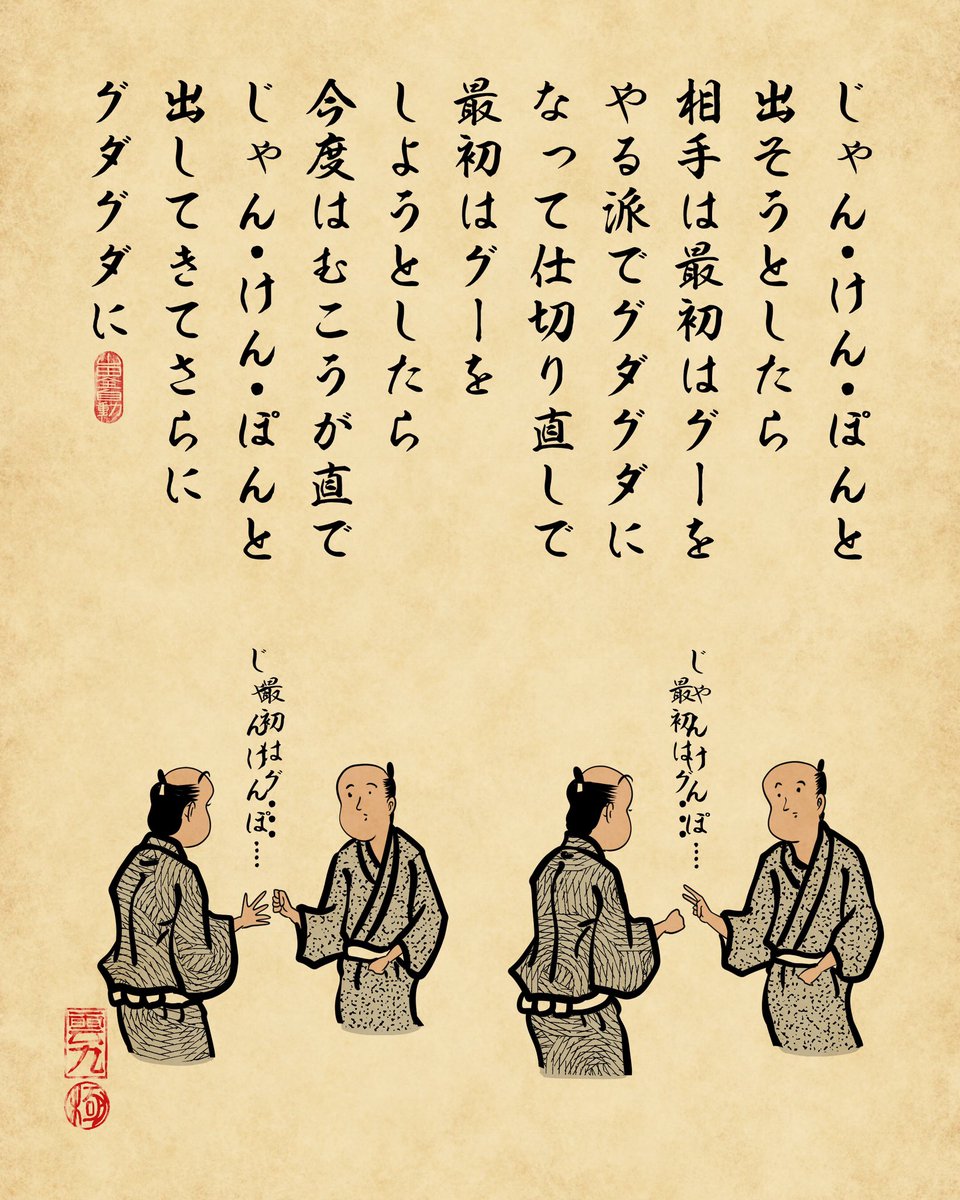 じゃん・けん・ぽんと
出そうとしたら
相手は最初はグーを
やる派でグダグダに
なって仕切り直しで
最初はグーを
しようとしたら
今度はむこうが直で
じゃん・けん・ぽんと
出してきてさらに
グダグダに
じゃんけんぽ…
最初はグ…
最初はグ…
じゃんけんぽ…